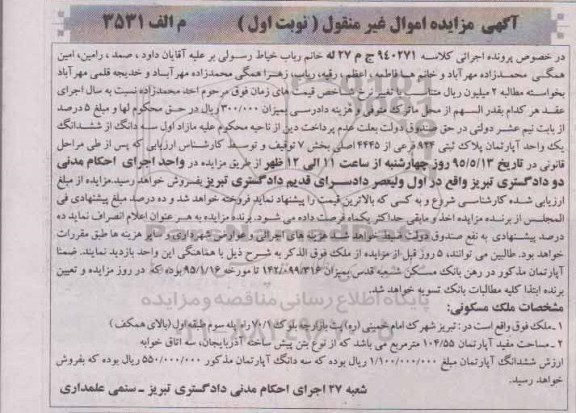 آگهی مزایده اموال غیر منقول ( نوبت اول ) م الف ۳۵۳۱
در خصوص پرونده اجرائی کلاسه ۹۴۰۲۷۱ ج م ۲۷ له خانم رباب خیاط رسولی بر علیه آقایان داود ، صمد ، رامین، امین
همگی محمدزاده مهرآباد و خانم ها فاطمه، اعظم ، رقیه، رباب، زهرا همگی محمدزاده مهرآباد و خدیجه قلمی مهرآباد
بخواسته مطالبه ۲ میلیون ریال متناسب با تغییر نرخ شاخص قیمت های زمان فوق مرحوم احد محمدزاده نسبت به سال اجرای
عقد هر کدام بقدر السهم از محل ماترک متوفی و هزینه دادرسی بمیزان ۳۰۰/۰۰۰ ریال در حق محکوم لها و مبلغ ۵ درصد
از بابت نیم عشر دولتی در حق صندوق دولت بعلت عدم پرداخت دین از ناحیه محکوم علیه مازاد اول سه دانگ از ششدانگ
یک واحد آپارتمان پلاک ثبتی ۹۲۴ فرعی از ۴۴۴۵ اصلی بخش ۷ توقیف و توسط کارشناس ارزیابی که پس از طی مراحل
قانونی در تاریخ ۹۵/۵/۱۳ روز چهارشنبه از ساعت ۱۱ الی ۱۲ ظهر از طریق مزایده در واحد اجرای احکام مدنی
دو دادگستری تبریز واقع در اول ولیعصر دادسرای قدیم دادگستری تبریز بفروش خواهد رسید.مزایده از مبلغ
ارزیابی شده کارشناسی شروع و به کسی که بالاترین قیمت را پیشنهاد نماید فروخته خواهد شد و ده درصد مبلغ پیشنهادی فی
المجلس از برنده مزایده اخذ و مابقی حداکثر یکماه فرصت داده می شود. برنده مزایده به هر عنوان اعلام انصراف نماید ده
درصد پیشنهادی به نفع صندوق دولت ضبط خواهد شد هزینه های اجرائی و عوارض شهرداری و سایر هزینه ها طبق مقررات
خواهد بود. طالبین می توانند، ۵ روز قبل از مزایده از ملک فوق الذکر به شرح ذیل با هماهنگی این واحد بازدید نمایند. ضمناً
آپارتمان مذکور در رهن بانک مسکن شعبه قدس بمیزان ۱۴۲/۰۹۹/۳۱۶ تا مورخه ۹۵/۱/۱۶ بوده که در روز مزایده و تعیین
برنده ابتدا کلیه مطالبات بانک تسویه خواهد شد.
مشخصات ملک مسکونی:
۱ـ ملک فوق واقع است در : تبریز شهرک امام خمینی (ره) پت بازارچه بلوک ۷۰/۱ راه پله سوم طبقه اول (بالای همکف )
۲ ـ مساحت مفید آپارتمان ۱۰۴/۵۵ مترمربع می باشد که از نوع بتن پیش ساخته آذربایجان، سه اتاق خوابه
ارزش ششدانگ آپارتمان مبلغ ۱/۱۰۰/۰۰۰/۰۰۰ ریال بوده که سه دانگ آپارتمان مذکور ۵۵۰/۰۰۰/۰۰۰ ریال بوده که بفروش
خواهد رسید.
شعبه ۲۷ اجرای احکام مدنی دادگستری تبریز ـ ستمی علمداری
پایگاه اطلاع رسانی مناقصه و مزایده